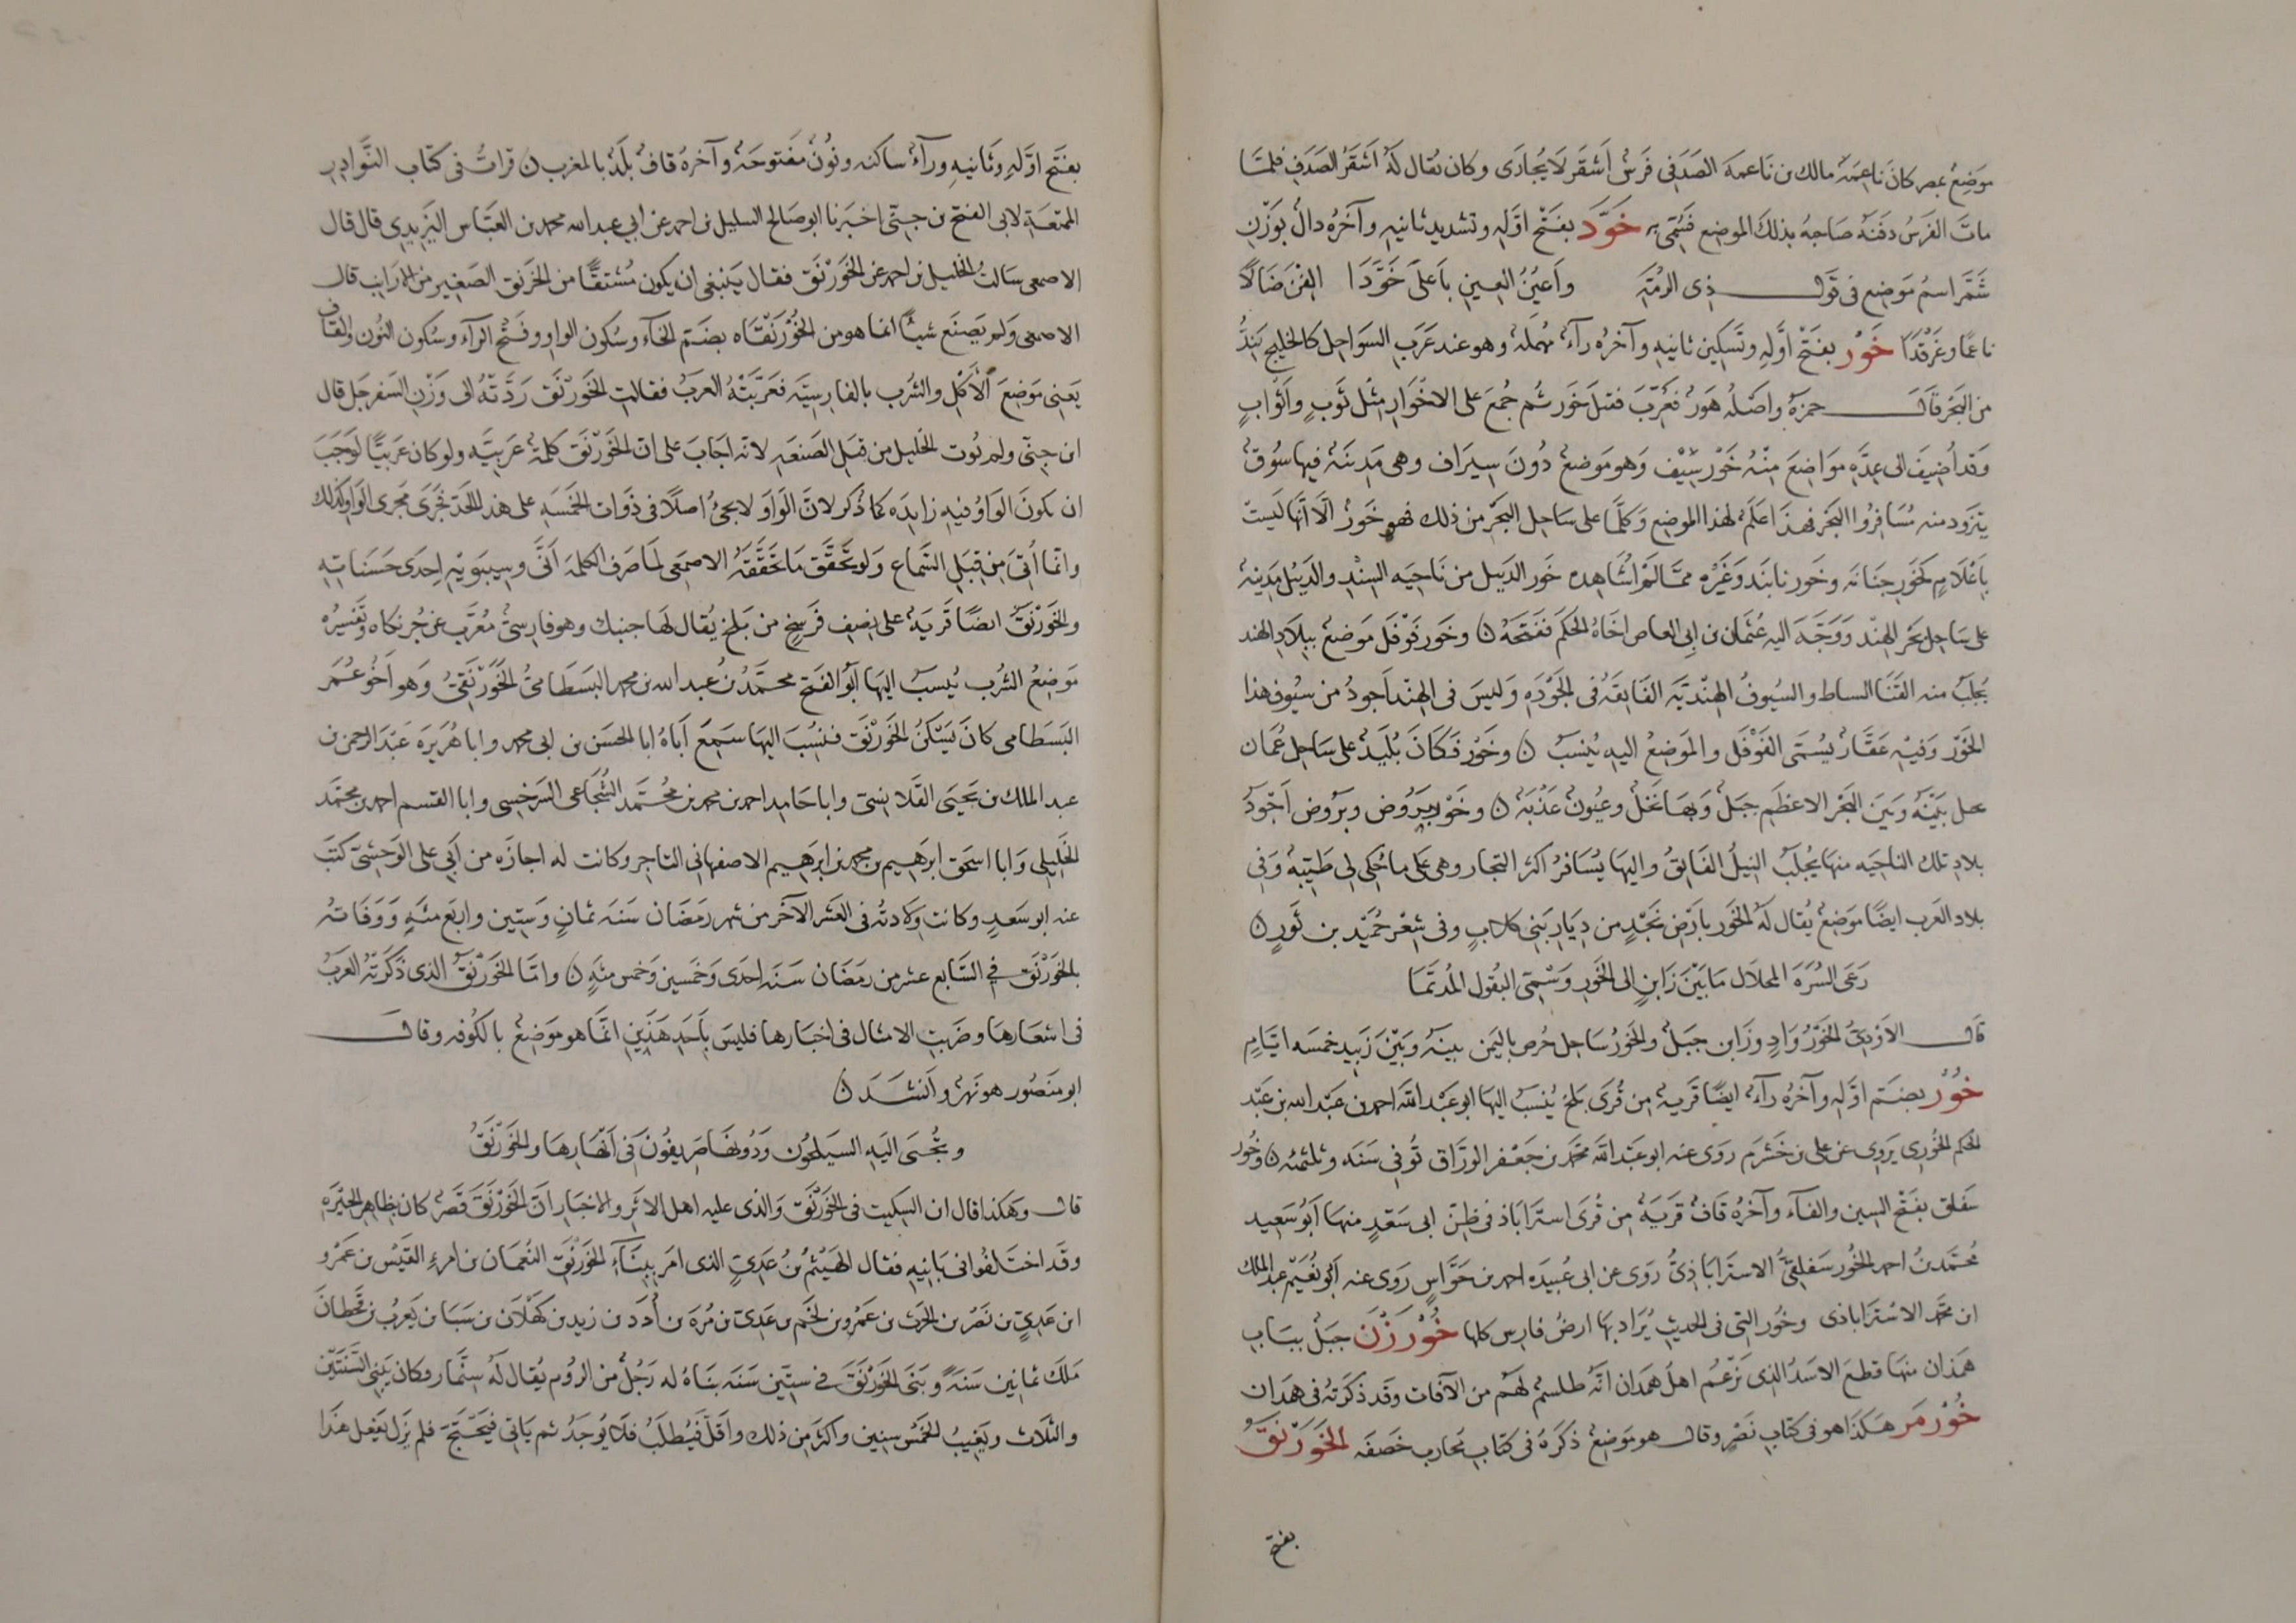 موضع بمصر كان ناعمة مالك بن ناعمة الصدفي فرس أشقر لا يجارى وكان يقال له أشقر الصدف فلما
مات الفرس دفنه صاحبه بذلك الموضع فسمي به خَوَّد بفتح أوله وتشديد ثانيه وآخره دال بوزن
شمّر اسم موضع في قول ذي الرمة وأعين العين بأعلى خوّدا الفن ضالا
ناعما وغرقدا خَوْر بفتح أوله وتسكين ثانيه وآخره رآء مهملة وهو عند عرب السواحل كالخليج يندّ
من البحر قال حمزة وأصله هور فعرّب فقيل خور ثم جمع على الاخوار مثل ثوب وأثواب
وقد أضيف الى عدة مواضع منه خور سيف وهو موضع دون سيراف وهي مدينة فيها سوق
يتزود منه مسافروا البحر فهذا علم لهذا الموضع وكلما على ساحل البحر من ذلك فهو خور الا أنها ليست
بأعلام كخور جنانه وخور نابند وغيره مما لم اشاهده خور الديبل من ناحيه السند والديبل مدينة
على ساحل بحر الهند ووجه اليه عثمان بن ابي العاص اخاه الحكم ففتحه ن وخور فوفل موضع ببلاد الهند
يجلب منه القنا السباط والسيوف الهندية الفايقة في الجوده وليس في الهند اجود من سيوف هذا
الخور وفيه عقار يسمى الفوفل والموضع اليه ينسب ن وخور فكان بليد على ساحل عمان
يحل بينه وبين البحر الاعظم جبل وبها نخل وعيون عذبة ن وخور بروض وبروض اجود
بلاد تلك الناحيه منها يجلب النيل الفايق واليها يسافر اكثر التجار وهي على ما حكي لي طيبة وفي
بلاد العرب ايضا موضع يقال له الخور بارض نجد من ديار بني كلاب وفي شعر حميد بن ثور ن
رعى السرة المحلال ما بين زابن الى الخور وسمي البقول المديما
قال الاودي الخور واد وزابن جبل والخور ساحل حرض باليمن بينه وبين زبيد خمسه ايام
خُوْر بضم اوله وآخره رآء ايضا قرية من قرى بلخ ينسب اليها ابو عبد الله احمد بن عبد الله بن عبد
الحكم الخوري يروي عن علي بن خشرم روى عنه ابو عبد الله محمد بن جعفر الوراق توفي سنه وثلثمئه ن وخور
سفلق بفتح السين والفآء وآخره قاف قرية من قرى استراباذ في ظن ابي سعد منها ابو سعيد
محمد بن احمد الخور سفلقي الاستراباذي روى عن ابي عبيده احمد بن حواس روى عنه ابو نعيم عبد الملك
ابن محمد الاستراباذي وخور التي في الحديث يراد بها ارض فارس كلها خُوْرزَن جبل بباب
همذان منها قطع الاسد الذي تزعم اهل همدان انه طلسم لهم من الآفات وقد ذكرته في همدان
خُوْرمَر هكذا هو في كتاب نصر وقال هو موضع ذكره في كتاب محارب خصفه الخَوَرْنَقُ
بفتح
بفتح اوله وثانيه ورآء ساكنه ونون مفتوحة وآخره قاف بلد بالمغرب ن قرات في كتاب النوادر
الممتعة لابي الفتح بن جني اخبرنا ابو صالح السليل بن احمد عن ابي عبد الله محمد بن العباس اليزيدي قال قال
الاصمعي سالت الخليل بن احمد عن الخورنق فقال ينبغي ان يكون مشتقا من الخرنق الصغير من الارانب قال
الاصمعي ولم يصنع شيئا انما هو من الخورنقاه بضم الخآء وسكون الواو وفتح الرآء وسكون النون والقاف
يعني موضع الاكل والشرب بالفارسيه فعربته العرب فقالت الخورنق ردته الى وزن السفرجل قال
ابن جني ولم يؤت الخليل من قبل الصنعه لانه اجاب على ان الخورنق كلمة عربيه ولو كان عربيا لوجب
ان يكون الواو فيه زايده كما ذكر لان الواو لا يجئ اصلا في ذوات الخمسه على هذا الحد فجرى مجرى الواو كذلك
وانما أتى من قبل السماع ولو تحقق ما تحققه الاصمعي لما صرف الكلمه أنّى وسيبويه احدى حسناته
والخورنق ايضا قرية على نصف فرسخ من بلخ يقال لها خبنك وهو فارسي معرب عن خرنكاه وتفسيره
موضع الشرب ينسب اليها ابو الفتح محمد بن عبد الله بن محمد البسطامي الخورنقي وهو اخو عمر
البسطامي كان يسكن الخورنق فنسب اليها سمع اباه ابا الحسن بن ابي محمد وابا هريره عبد الرحمن بن
عبد الملك بن يحيى القلانسي وابا حامد احمد بن محمد بن محمد الشجاعي السرخسي وابا القسم احمد بن محمد
الخليلي وابا اسحق ابرهيم بن محمد بن ابرهيم الاصفهاني التاجر وكانت له اجازه من ابي علي الوحشي كتب
عنه ابو سعد وكانت ولادته في العشر الآخر من شهر رمضان سنه ثمان وستين واربع مئه ووفاته
بالخورنق في السابع عشر من رمضان سنه احدى وخمسين وخمس مئه ن واما الخورنق الذي ذكرته العرب
في اشعارها وضربت الامثال في اخبارها فليس باحد هذين انما هو موضع بالكوفه وقال
ابو منصور هو نهر وانشد ن
ويجبى اليه السيلحون ودونها صريفون في انهارها والخورنق
قال وهكذا قال ابن السكيت في الخورنق والذي عليه اهل الاثر والاخبار ان الخورنق قصر كان بظاهر الحيره
وقد اختلفوا في بانيه فقال الهيثم بن عدي الذي امر ببنآء الخورنق النعمان بن امرء القيس بن عمرو
ابن عدي بن نصر بن الحرث بن عمرو بن لخم بن عدي بن مره بن أدد بن زيد بن كهلان بن سبا بن يعرب بن قحطان
ملك ثمانين سنة وبنى الخورنق في ستين سنه بناه له رجل من الروم يقال له سنمار وكان يبني السنتين
والثلاث ويغيب الخمس سنين واكثر من ذلك واقل فيطلب فلا يوجد ثم ياتي فيحتج فلم يزل يفعل هذا